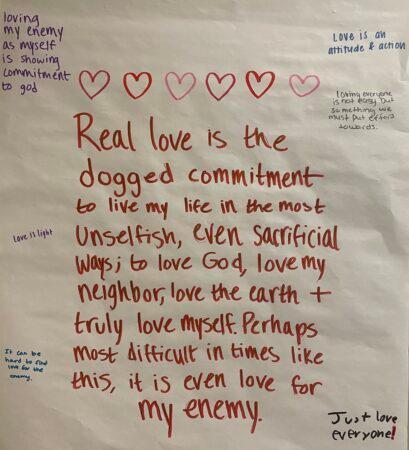 loving
my enemy
as myself
is showing
commitment
to god
Love is an
attitude & action
loving everyone
is not easy but
something we
must put effort
towards.
Real love is the
dogged commitment
to live my life in the most
unselfish, even sacrificial
ways; to love God, love my
neighbor, love the earth +
truly love myself. Perhaps
most difficult in times like
this, it is even love for
my enemy.
Love is light
It can be
hard to find
love for the
enemy.
Just love
everyone!